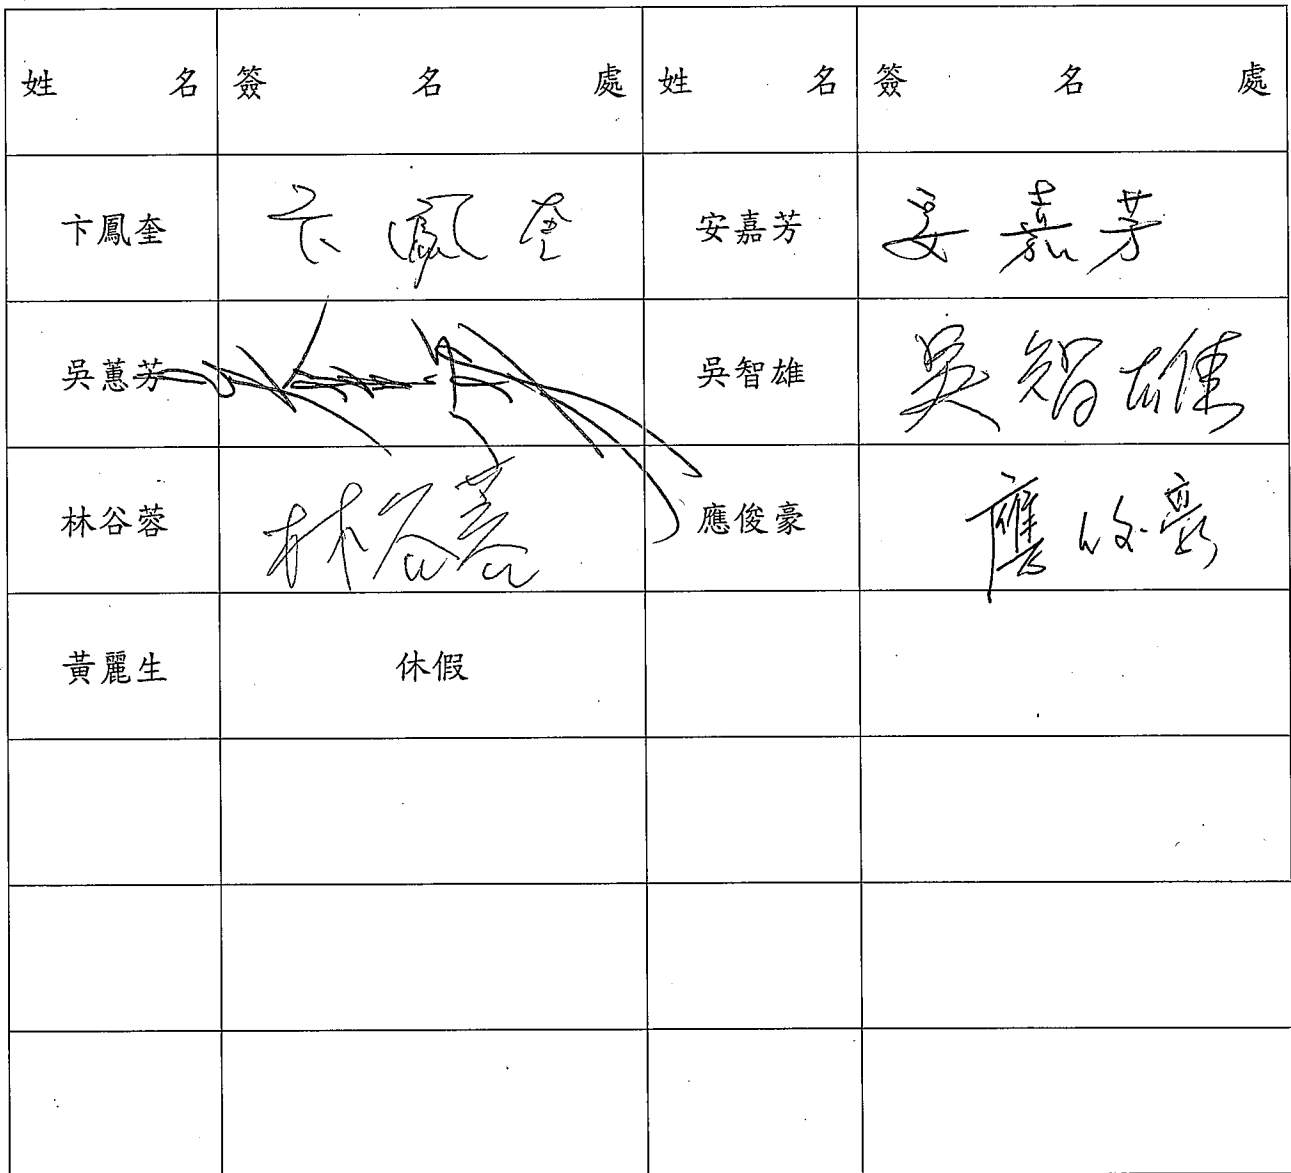 姓名 簽名處 姓名 簽名處
卞鳳奎 卞鳳奎 安嘉芳 安嘉芳
吳蕙芳 吳智雄 吳智雄
林谷蓉 林谷蓉 應俊豪 應俊豪
黃麗生 休假